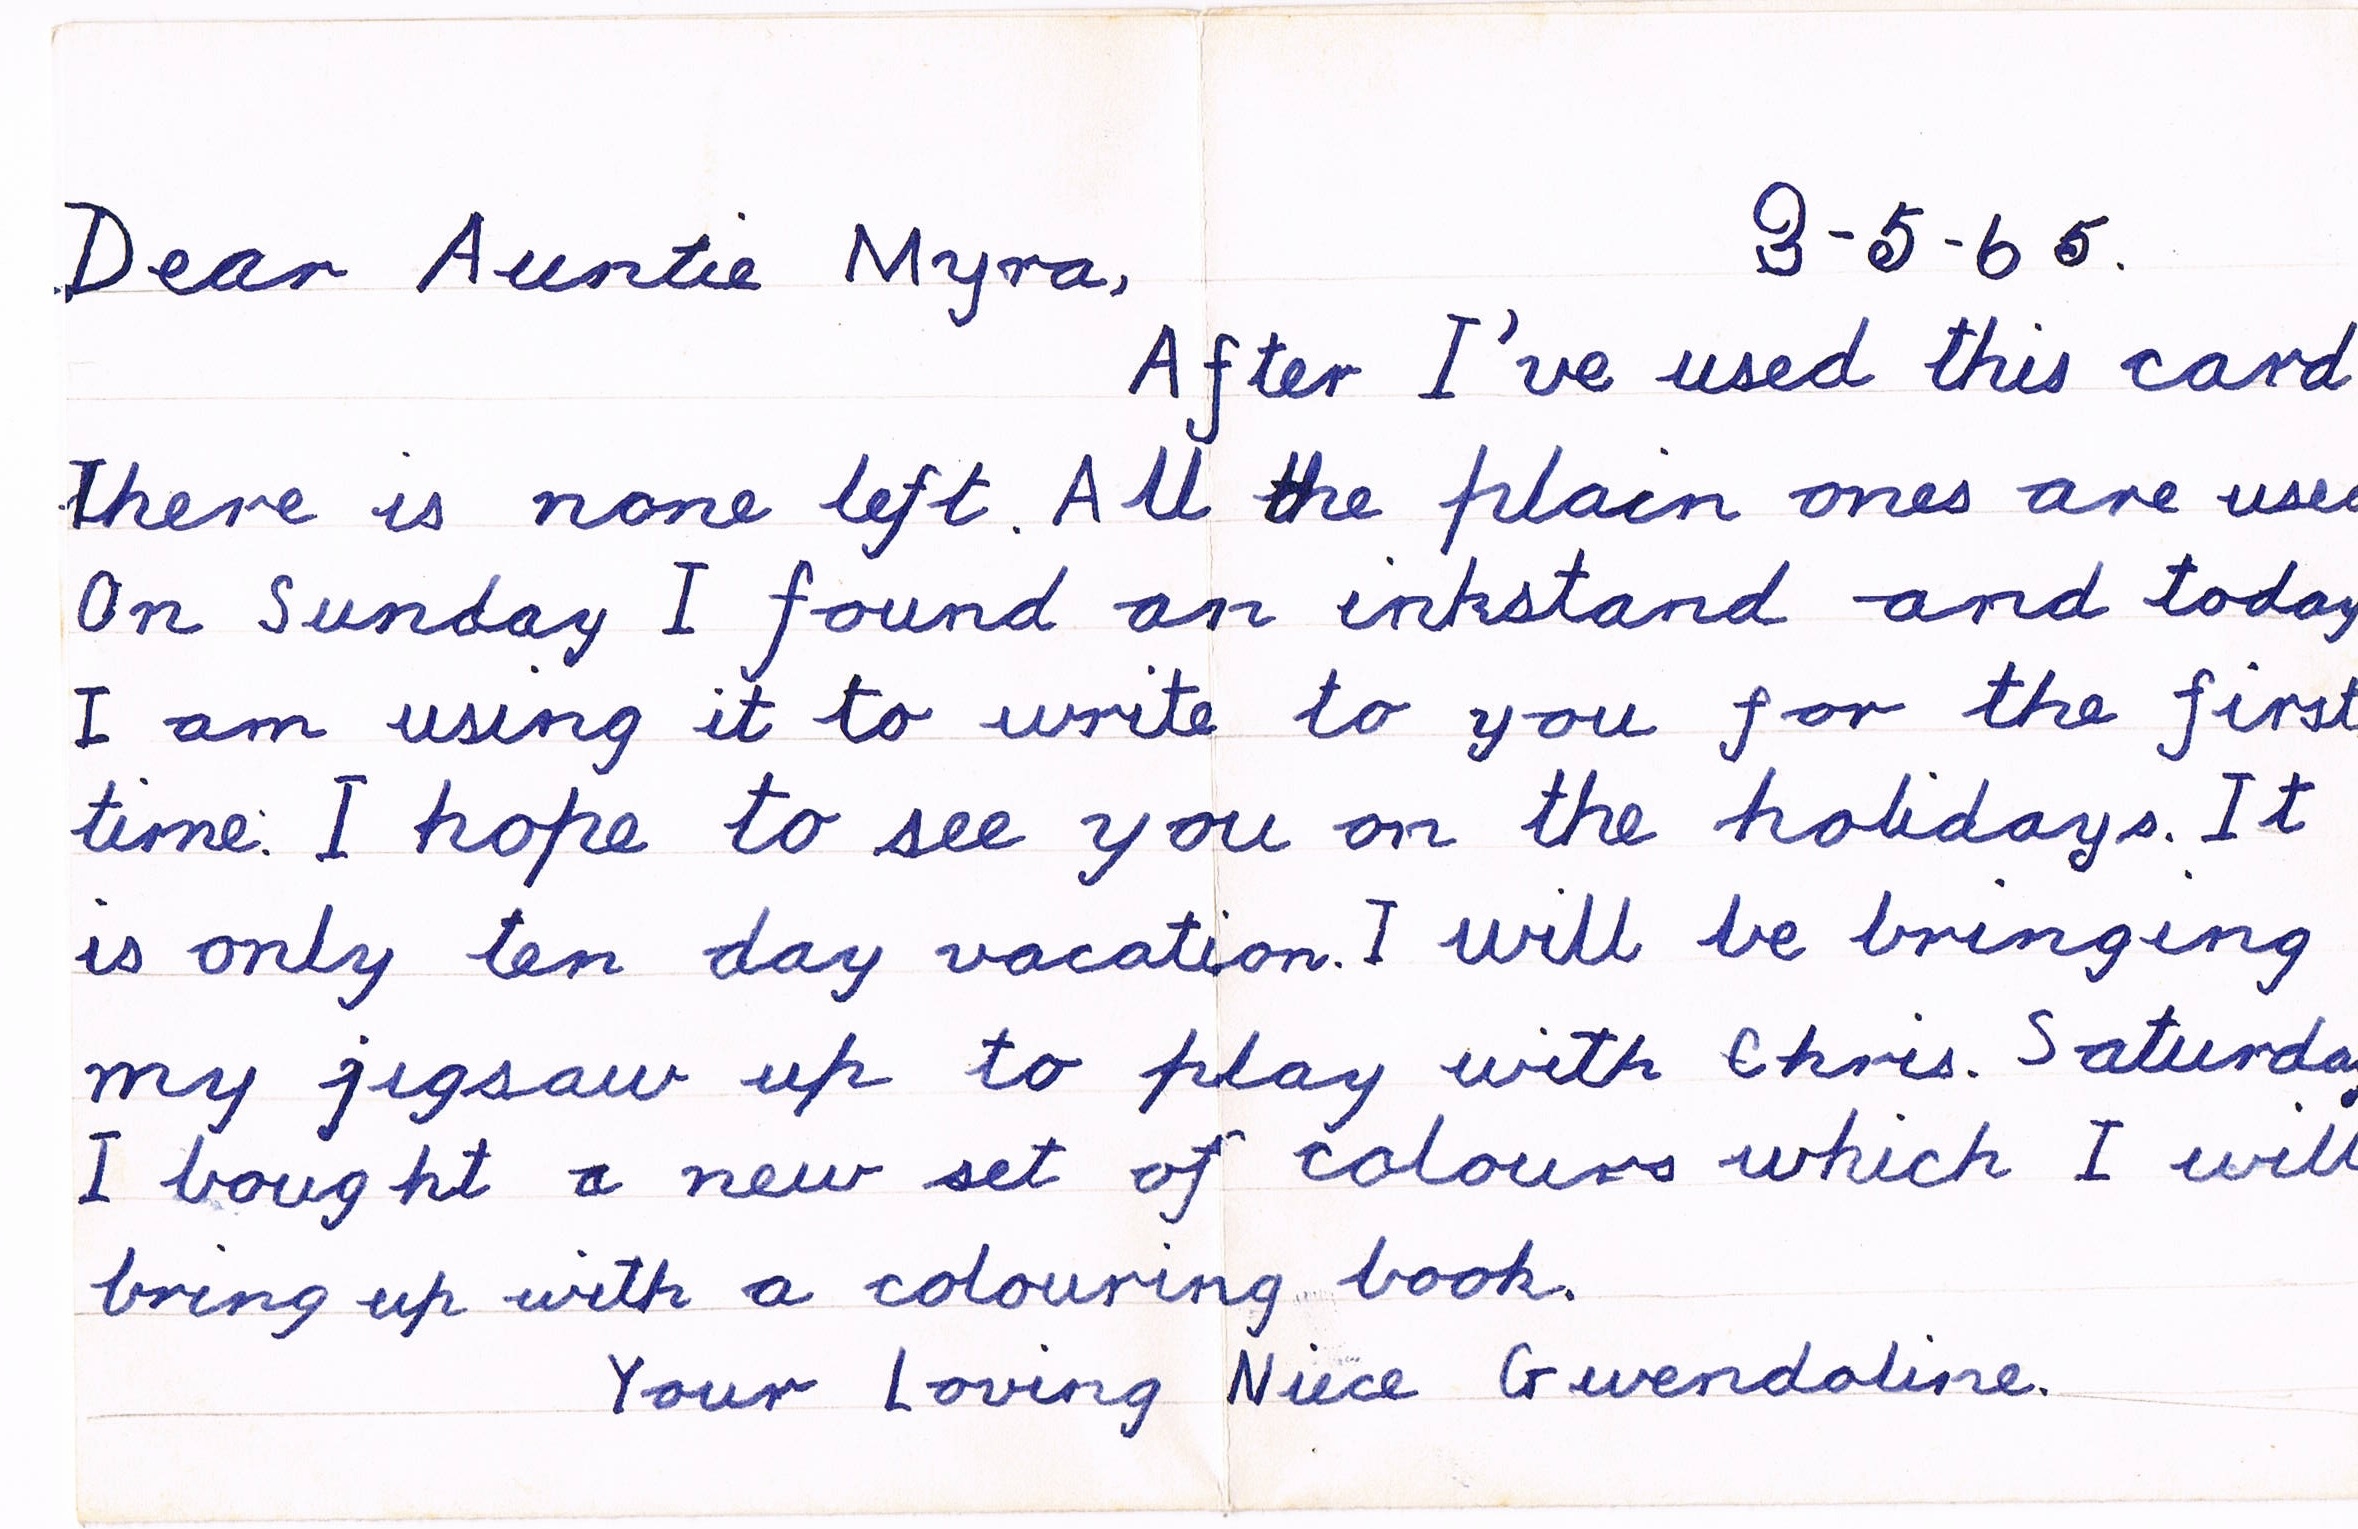 Dear Auntie Myra, 3-5-65.
After I've used this card
there is none left. All the plain ones are used
On Sunday I found an inkstand and today
I am using it to write to you for the first
time. I hope to see you on the holidays. It
is only ten day vacation. I will be bringing
my jigsaw up to play with Chris. Saturday
I bought a new set of colours which I will
bring up with a colouring book.
Your Loving Niece Gwendoline.